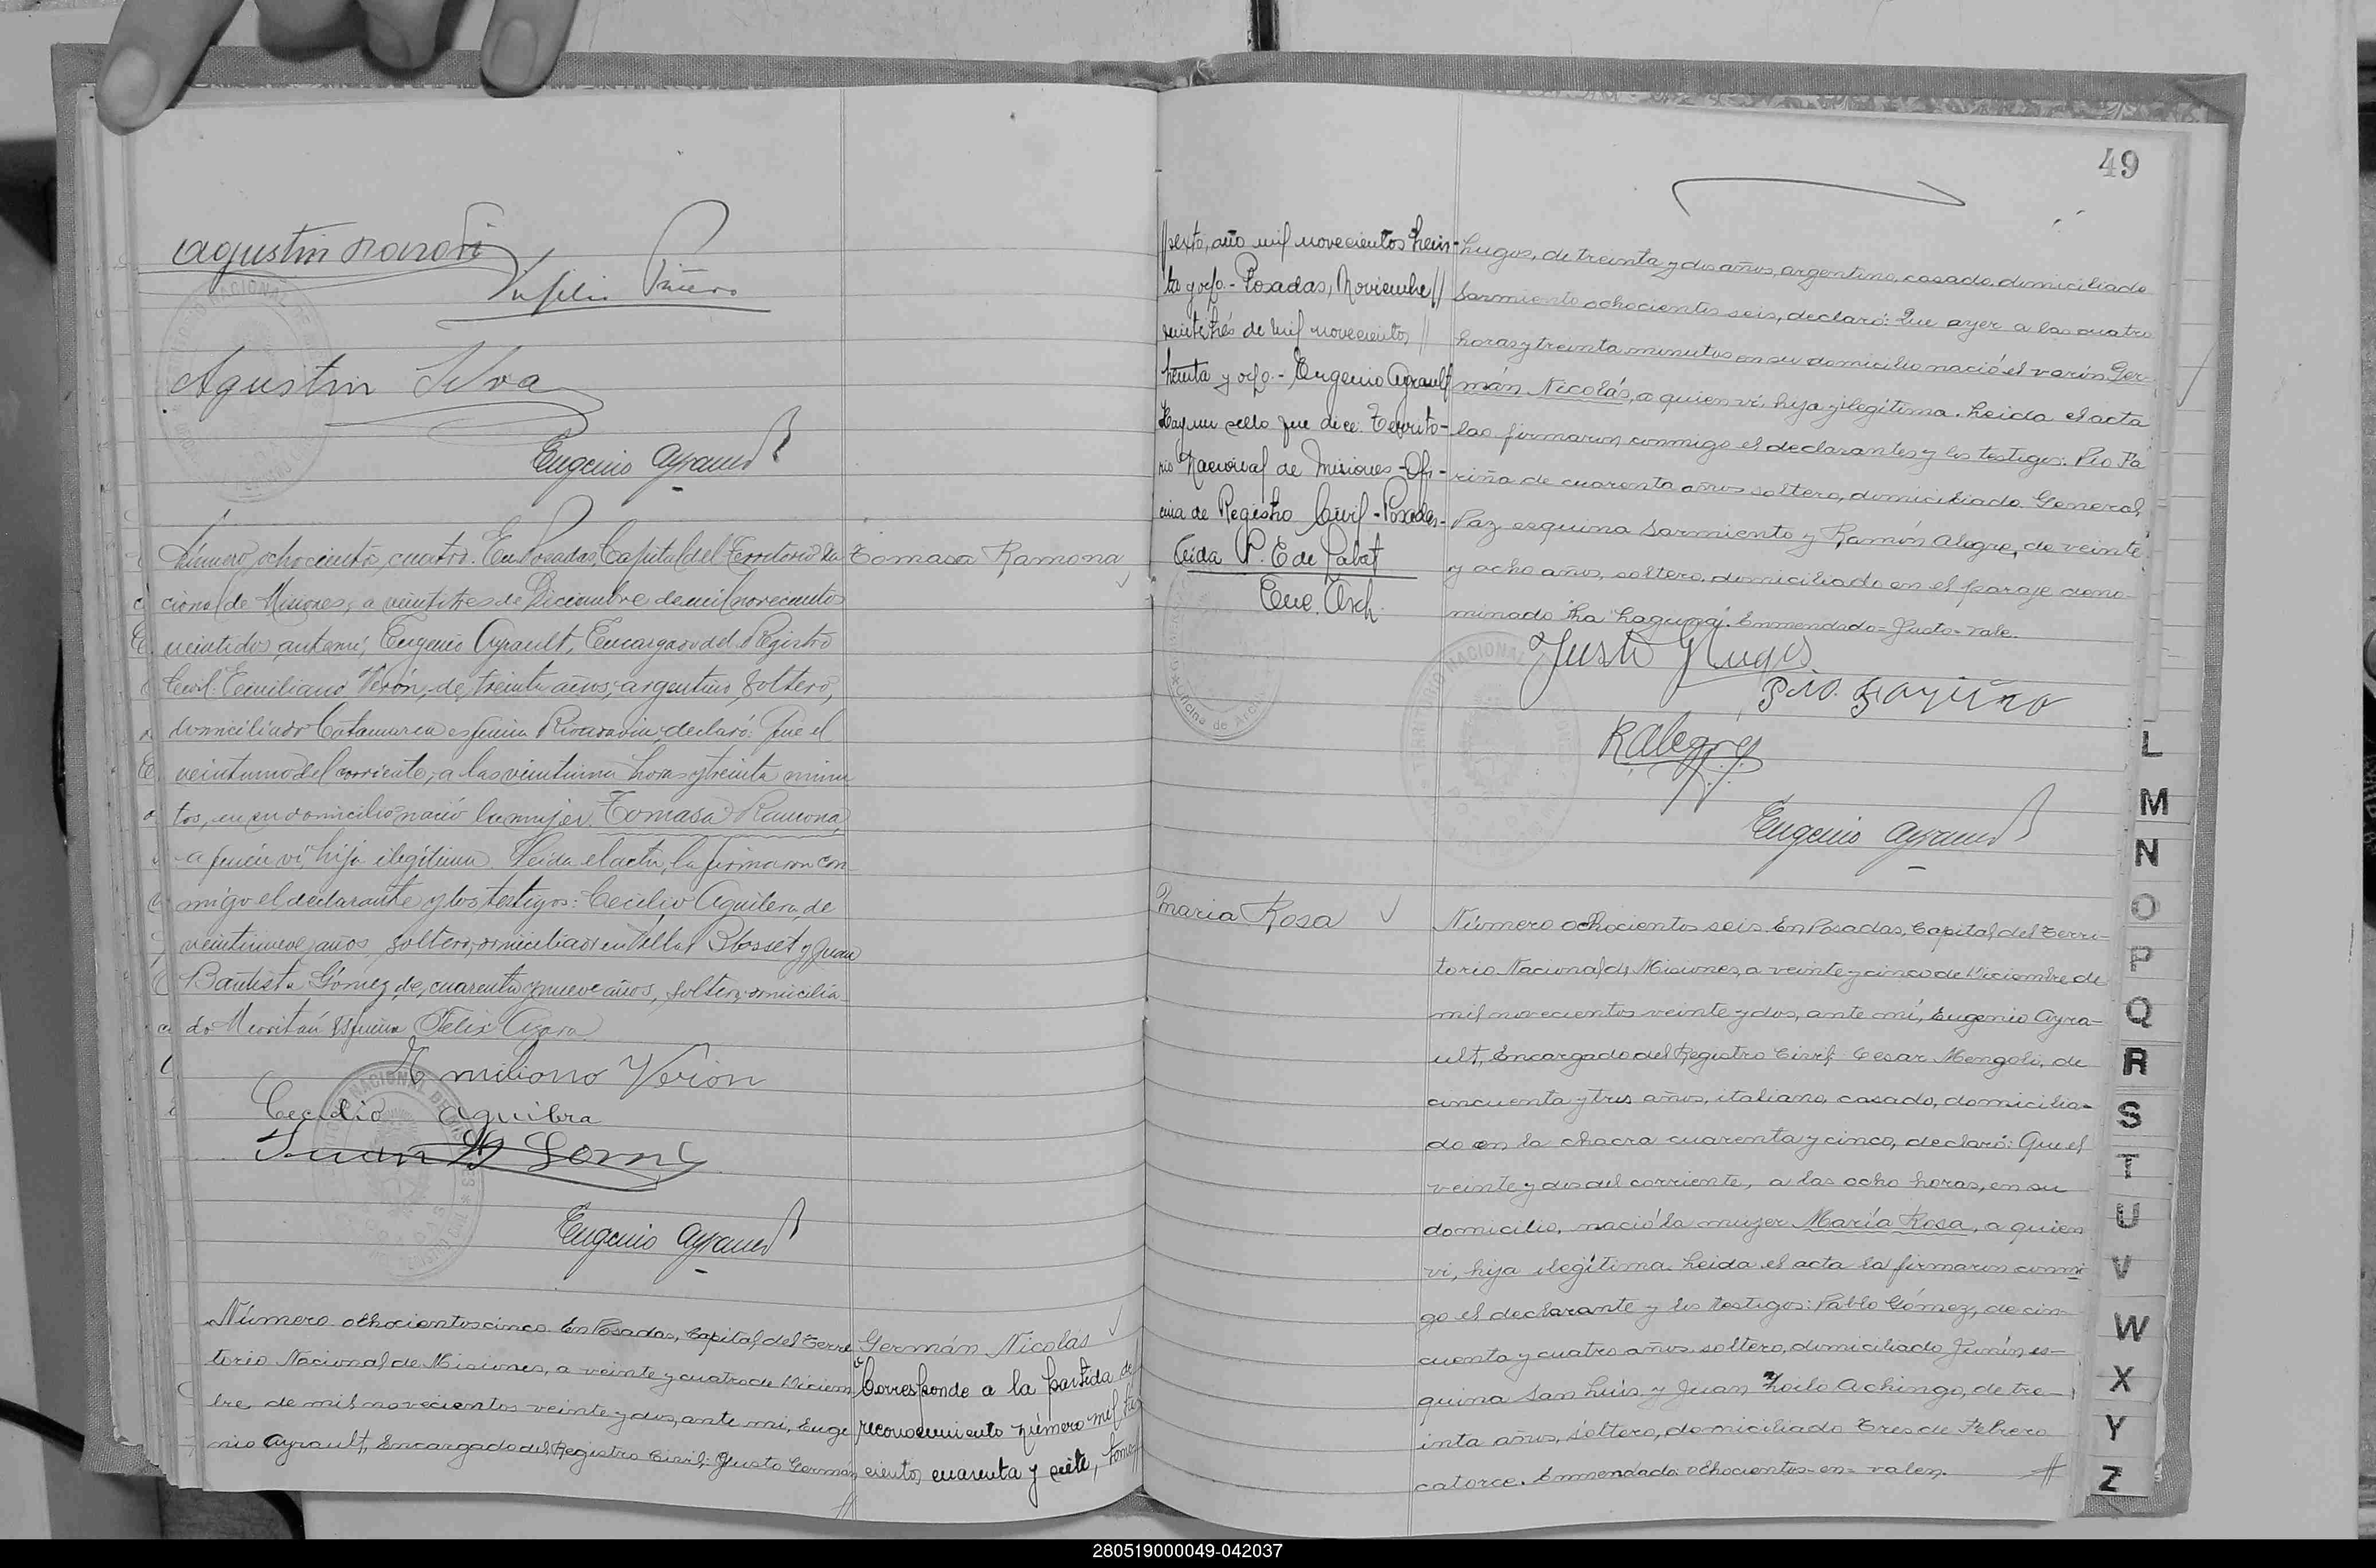 Agustin
Virgilio Piñero
Agustin Silva
Eugenio Ayrault
Número ochocientos cuatro. En Posadas, Capital del Territorio Na
cional de Misiones, a veintitres de Diciembre de mil novecientos
veintidos, ante mí, Eugenio Ayrault, Encargado del Registro
Civil: Emiliano Verón, de treinta años, argentino, soltero,
domiciliado Catamarca esquina Rivadavia, declaró: Que el
veintiuno del corriente, a las veintiuna horas y treinta minu
tos, en su domicilio nació la mujer Tomasa Ramona,
a quien ví, hija ilegítima. Leida el acta, la firmaron con
migo el declarante y los testigos: Cecilio Aguilera, de
veintinueve años, soltero, domiciliado en Villa Blosset y Juan
Bautista Gómez, de cuarenta y nueve años, soltero, domicilia
do esquina Felix Azara.
Emiliano Verón
Cecilio Aguilera
Juan B Gomez
Eugenio Ayrault
Tomasa Ramona
Número ochocientos cinco. En Posadas, Capital del Terri
torio Nacional de Misiones, a veinte y cuatro de Diciem
bre, de mil novecientos veinte y dos, ante mi, Euge
nio Ayrault, Encargado del Registro Civil: Justo Germán
//
Germán Nicolás
Corresponde a la partida de
reconocimiento número mil tres
cientos cuarenta y siete, tomo//
49
//sexto, año mil novecientos trein-
ta y ocho.- Posadas, Noviembre//
veintitrés de mil novecientos//
treinta y ocho.- Eugenio Ayrault
Hay un sello que dice: Territo-
rio Nacional de Misiones - Ofi-
cina de Registro Civil - Posadas.-
Aída P. E de Rabat
Enc. Arch.
Oficina de Arch
Lugos, de treinta y dos años, argentino, casado, domiciliado
Sarmiento ochocientos seis, declaró: Que ayer a las cuatro
horas y treinta minutos en su domicilio nació el varón Ger-
mán Nicolás, a quien ví, hijo ilegítima. Leida el acta
las firmaron conmigo el declarantes y los testigos: Pío Fa
riña de cuarenta años soltero, domiciliado General
Paz esquina Sarmiento y Ramón Alegre, de veinte
y ocho años, soltero, domiciliado en el paraje deno-
minado "La Laguna". Enmendado=Justo=vale.
Justo G Lugos
Pio Fariña
R Alegre
Eugenio Ayrault
Maria Rosa
Número ochocientos seis. En Posadas, Capital del Terri-
torio Nacional de Misiones, a veinte y cinco de Diciembre de
mil novecientos veinte y dos, ante mí, Eugenio Ayra-
ult, Encargado del Registro Civil: Cesar Mongoli, de
cincuenta y tres años, italiano, casado, domicilia-
do en la chacra cuarenta y cinco, declaró: Que el
veinte y dos del corriente, a las ocho horas, en su
domicilio, nació la mujer María Rosa, a quien
vi, hija ilegítima. Leida el acta la firmaron conmi
go el declarante y los testigos: Pablo Gómez, de cin-
cuenta y cuatro años, soltero, domiciliado Junín es-
quina San Luis y Juan Zoilo Achingo, de tre-
inta años, soltero, domiciliado Tres de Febrero
catorce. Enmendado: ochocientos=en=valen.
//
L
M
N
O
P
Q
R
S
T
U
V
W
X
Y
Z
280519000049-042037